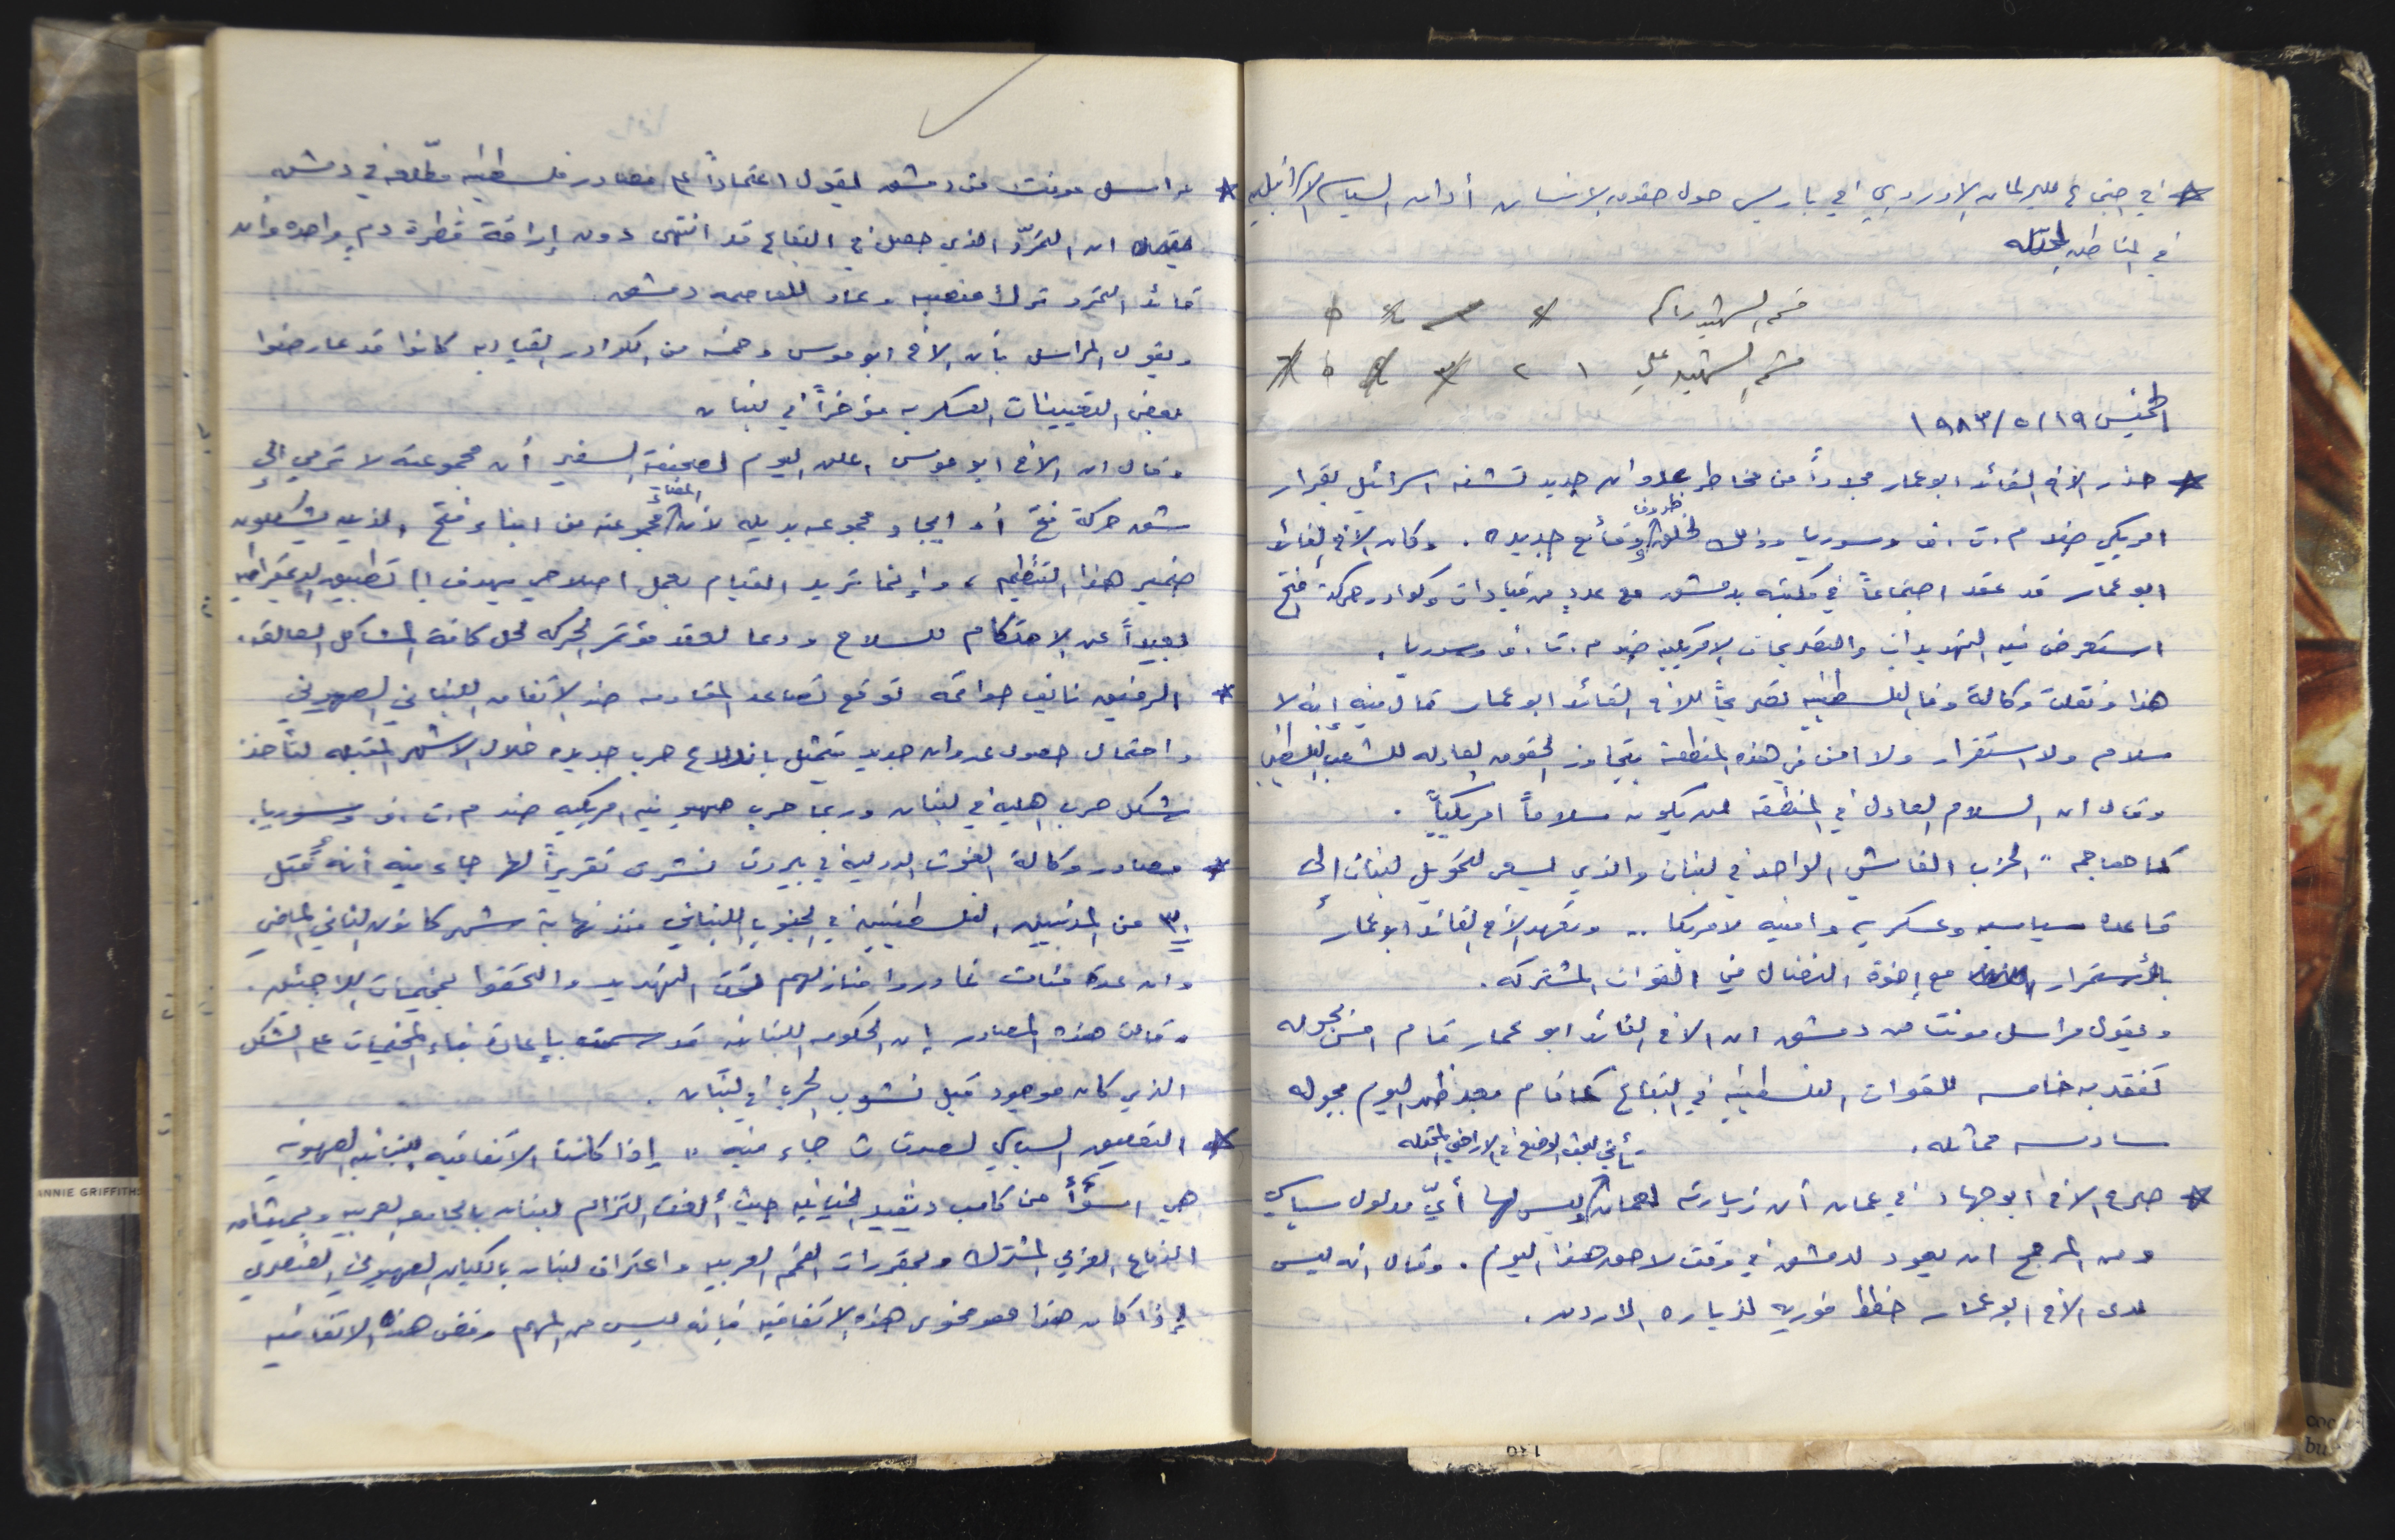 * في اجتماع للبرلمان الاوروبي في باريس حول حقوق الانسان أدان السياسه الاسرائيليه
في المناطق المحتله
قسم الشهيد ٥
قسم الشهيد علي ١ ٢ ٣ ٤ ٥ ٦
الخميس ١٩/٥/١٩٨٣
* حذر الاخ القائد ابو عمار مجدداً من مخاطر عدوان جديد تشنه اسرائيل بقرار
امريكي ضد م.ت.ف وسوريا وذلك لخلق ظروف ووقائع جديده. وكان الاخ القائد
ابو عمار قد عقد اجتماعاً في مكتبه بدمشق مع عددٍ من قيادات وكوادر حركة فتح
استعرض فيه التهديدات والتصريحات الامريكيه ضد م.ت.ف وسوريا.
هذا ونقلت وكالة وفا الفلسطينيه تصريحاً للاخ القائد ابو عمار قال فيه إنه لا
سلام ولا استقرار ولا امن في هذه المنطقة يتجاوز الحقوق العادله للشعب الفلسطيني
وقال ان السلام العادل في المنطقه لن يكون سلاماً امريكياً.
كما هاجم " الحزب الفاشي الواحد في لبنان والذي يسعى لتحويل لبنان الى
قاعدة سياسيه وعسكريه وامنيه لامريكا .. وتعهد الأخ القائد ابو عمار
بالأستمرار مع إخوة النضال في القوات المشتركه.
ويقول مراسل مونت من دمشق ان الاخ القائد ابو عمار قام امس بجوله
تفقديه خامسه للقوات الفلسطينيه في البقاع كما قام بعد ظهر اليوم بجوله
سادسه مماثله.
* صرح الاخ ابو جهاد في عمان أن زيارته لعمان تأتي لبحث الوضع في الاراضي المحتله وليس لها أيّ مدلول سياسي
ومن المرجح ان يعود لدمشق في وقت لاحق هذا اليوم. وقال انه ليس
لدى الاخ ابو عمار خطط فوريه لزياره الاردن.
* مراسل مونت من دمشق يقول اعتماداً على مصادر فلسطينيه مطّلعه في دمشق
ان التمرّد الذي حصل في البقاع قد انتهى دون إراقة قطرة دم واحده وان
قائد التمرد ترك منصبه وعاد للعاصمه دمشق
ويقول المراسل بأن الاخ ابو موسى وخمسه من الكوادر القياديه كانوا قد عارضوا
بعض التعيينات العسكريه مؤخراً في لبنان
وقال ان الاخ ابو موسى اعلن اليوم لصحيفة السفير أن مجموعته لا ترمي إلى
شق حركة فتح أو ايجاد مجموعه بديله لأن مجموعته من ابناء فتح الذين يشكلون
ضمير هذا التنظيم، وإنما تريد القيام بعمل اصلاحي يهدف إلى تطبيق الديمقراطيه
بعيداً عن الاحتكام للسلاح ودعا لعقد مؤتمر الحركه لحل كافة المشاكل العالقه.
* الرفيق نايف حواتمه توقع تصاعد المقاومه ضد الاتفاق اللبناني الصهيوني
واحتمال حصول عدوان جديد يتمثل باندلاع حرب جديده خلال الاشهر المقبله لتأخذ
شكل حرب اهليه في لبنان وربما حرب صهيونيه امريكيه ضد م.ت.ف وسوريا.
* مصادر وكالة الغوث الدوليه في بيروت نشرت تقريراً لها جاء فيه أنه قُتل
٣١ من المدنيين الفلسطينيين في الجنوب اللبناني منذ نهاية شهر كانون الثاني الماضي
وان عدة مئات غادروا منازلهم تحت التهديد والتحقوا بمخيمات اللاجئين.
وقالت هذه المصادر إن الحكومه اللبنانيه قد سمحت بإعادة بناء المخيمات على الشكل
الذي كان موجود قبل نشوب الحرب في لبنان.
* التعليق السياسي لصوت جاء فيه " إذا كانت الاتفاقيه اللبنانيه الصهيونيه
هي اسوأ من كامب ديفيد الخيانيه حيث ألغت التزام لبنان بالجامعه العربيه وبميثاق
الدفاع العربي المشترك وبمقررات القمم العربيه واعتراف لبنان بالكيان الصهيوني العنصري
إذا كان هذا هو فحوى هذه الاتفاقيه فإنه ليس من المهم رفض هذه الاتفاقيه
ANNIE GRIFFITHS